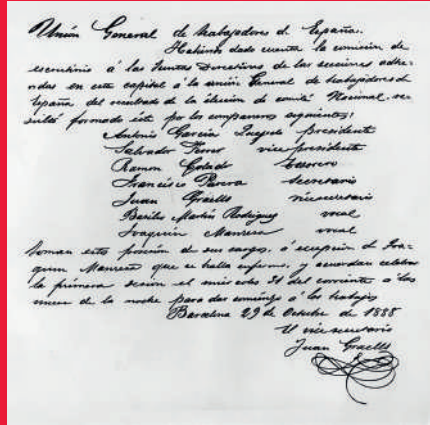 Unión General de trabajadores de España.
Habiendo dado cuenta la comisión de
escrutinio á las Juntas Directivas de las secciones adhe-
ridas en esta capital á la unión General de trabajadores de
España del resultado de la elección de comité Nacional, re-
sultó formado éste por los compañeros siguientes:
Antonio García Quejido presidente
Salvador Ferrer vicepresidente
Ramon Colado Tesorero
Francisco Parera secretario
Juan Graells vicesecretario
Basilio Martín Rodríguez vocal
Joaquin Manresa vocal
Toman estos posesión de sus cargos, á excepción de Joa-
quin Manresa que se halla enfermo, y acuerdan celebrar
la primera sesión el miercoles 31 del corriente á las
nueve de la noche para dar comienzo á los trabajos
Barcelona 29 de Octubre de 1888
El vicesecretario
Juan Graells